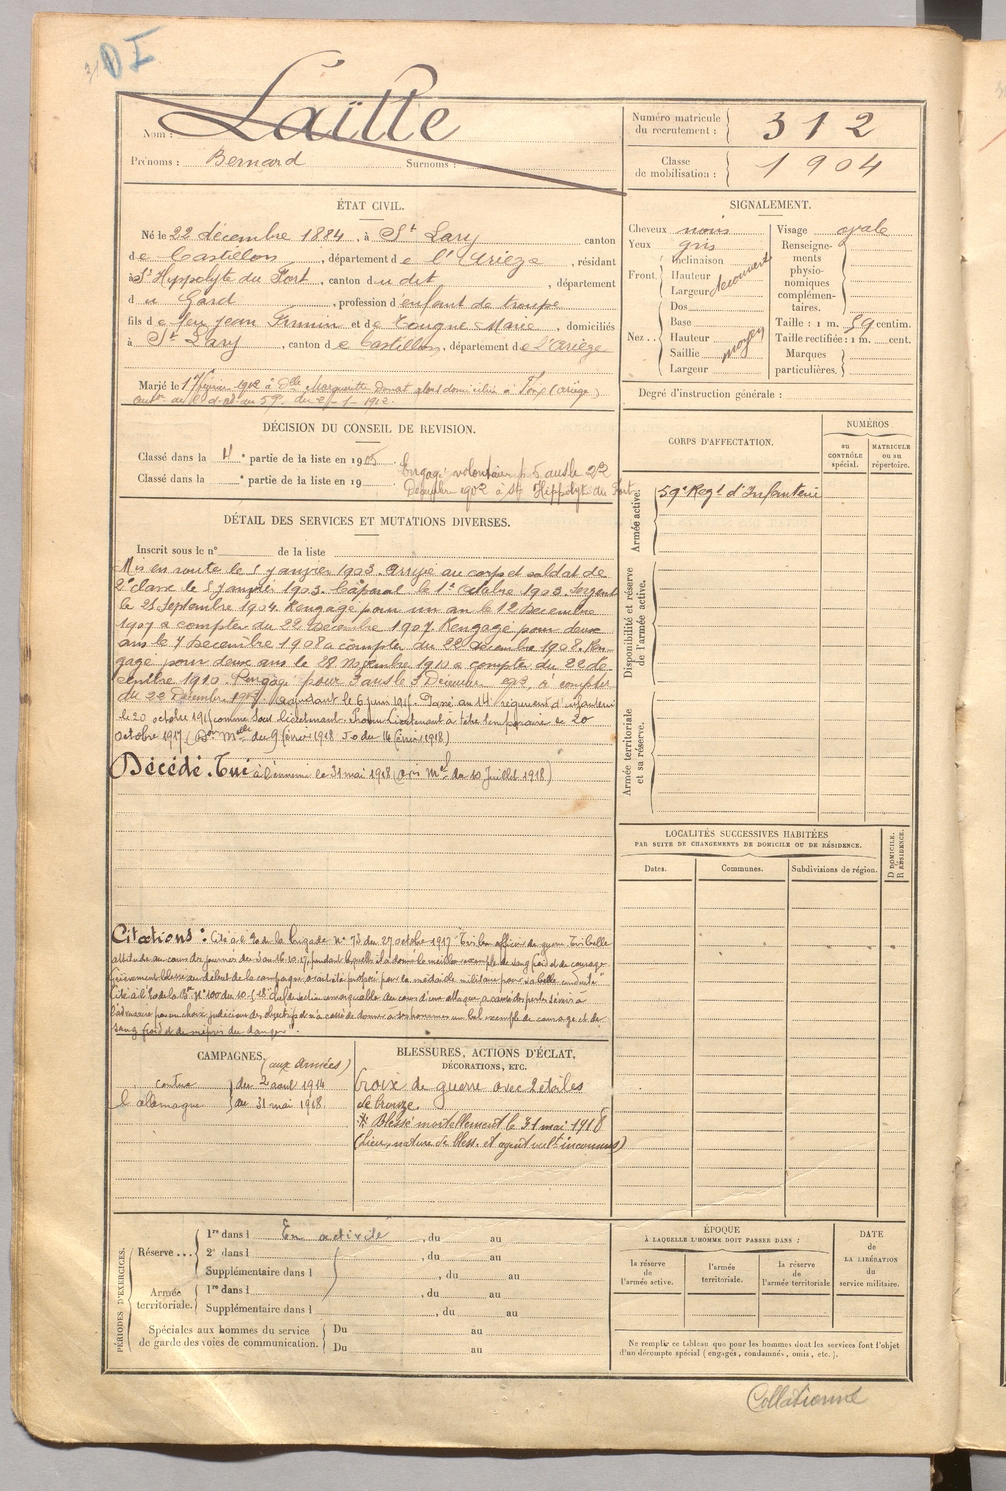 DI
Nom : Laïlle
Prénoms : Bernard Surnoms :
Numéro matricule du recrutement : 312
Classe de mobilisation : 1904
ÉTAT CIVIL.
Né le 22 décembre 1884, à St Lary canton
de Castillon, département de l'Ariège, résidant
à St Hippolyte du Fort, canton du dit, département
du Gard, profession d'enfant de troupe
fils de feu Jean Firmin et de Tougne Marie, domiciliés
à St Lary, canton de Castillon, département de l'Ariège
Marié le 17 février 1912 à Dlle Marguerite Donat alors domiciliée à Foix (Ariège)
du 59e du 2-1-1912.
SIGNALEMENT.
Cheveux noirs
Yeux gris
Front. Inclinaison
Hauteur
Largeur découvert
Nez.. Dos
Base
Hauteur
Saillie moyen
Largeur
Visage ovale
Renseignements physionomiques complémentaires.
Taille : 1 m. 59 centim.
Taille rectifiée : 1 m. cent.
Marques particulières.
Degré d'instruction générale :
DÉCISION DU CONSEIL DE REVISION.
Classé dans la 4e partie de la liste en 1905. Engagé volontaire p. 5 ans le 22
Classé dans la e partie de la liste en 19 Décembre 1902 à St Hippolyte du Fort
CORPS D'AFFECTATION.
NUMÉROS
au CONTRÔLE spécial.
MATRICULE ou au répertoire.
Armée active.
59e Regt d'Infanterie
Disponibilité et réserve de l'armée active.
Armée territoriale et sa réserve.
DÉTAIL DES SERVICES ET MUTATIONS DIVERSES.
Inscrit sous le n° de la liste
Mis en route le 5 janvier 1903. Arrivé au corps et soldat de
2e classe le 5 janvier 1903. Caporal le 1er Octobre 1903. Sergent
le 25 Septembre 1904. Rengagé pour un an le 12 Décembre
1907 à compter du 22 Décembre 1907. Rengagé pour deux
ans le 7 Décembre 1908 à compter du 22 Décembre 1908. Ren
gagé pour deux ans le 28 Novembre 1910 à compter du 22 dé
cembre 1910. Rengagé pour 3 ans le 3 Décembre 1912, à compter
du 22 Décembre 1912. Adjudant le 6 juin 1915. Passé au 14e régiment d'infanterie
le 20 octobre 191 comme sous lieutenant. Promu Lieutenant à titre temporaire le 20
octobre 1917 (Don melle du 9 février 1918 J.O du 14 février 1918)
Décédé. Tué à l'ennemi le 31 mai 1918 (avis Mel du 10 Juillet 1918)
LOCALITÉS SUCCESSIVES HABITÉES
PAR SUITE DE CHANGEMENTS DE DOMICILE OU DE RÉSIDENCE.
Dates.
Communes.
Subdivisions de région.
D DOMICILE. R RÉSIDENCE.
Citations : Cité à l'O. de la brigade n° 73 du 27 octobre 1917. Très bon officier de guerre. Très belle
attitude au cours des journées du 3 au 16.10.17, pendant lesquelles il a donné le meilleur exemple de sang froid et de courage
Grièvement blessé au début de la campagne avait été proposé pour la médaille militaire pour sa belle conduite"
Cité à l'O. de la N° 100 du 10.5.18 chef de section remarquable au cours d'une attaque a causé des pertes sévères à
l'adversaire par un choix judicieux des objectifs n'a cessé de donner à ses hommes un bel exemple de courage et de
sang froid et de mépris du danger".
CAMPAGNES.
(aux armées)
contre l'allemagne
du 2 août 1914
au 31 mai 1918.
BLESSURES, ACTIONS D'ÉCLAT,
DÉCORATIONS, ETC.
Croix de guerre avec 2 étoiles
de bronze.
Blessé mortellement le 31 mai 1918
(Lieu, nature de bless. et agent vult inconnus)
PÉRIODES D'EXERCICES.
Réserve... 1re dans l En activité, du au
2e dans l , du au
Supplémentaire dans l , du au
Armée territoriale. 1re dans l , du au
Supplémentaire dans l , du au
Spéciales aux hommes du service de garde des voies de communication. Du au
Du au
ÉPOQUE
À LAQUELLE L'HOMME DOIT PASSER DANS :
la réserve de l'armée active.
l'armée territoriale.
la réserve de l'armée territoriale
DATE de LA LIBÉRATION du service militaire.
Ne remplir ce tableau que pour les hommes dont les services font l'objet
d'un décompte spécial (engagés, condamnés, omis, etc.).
Collationné